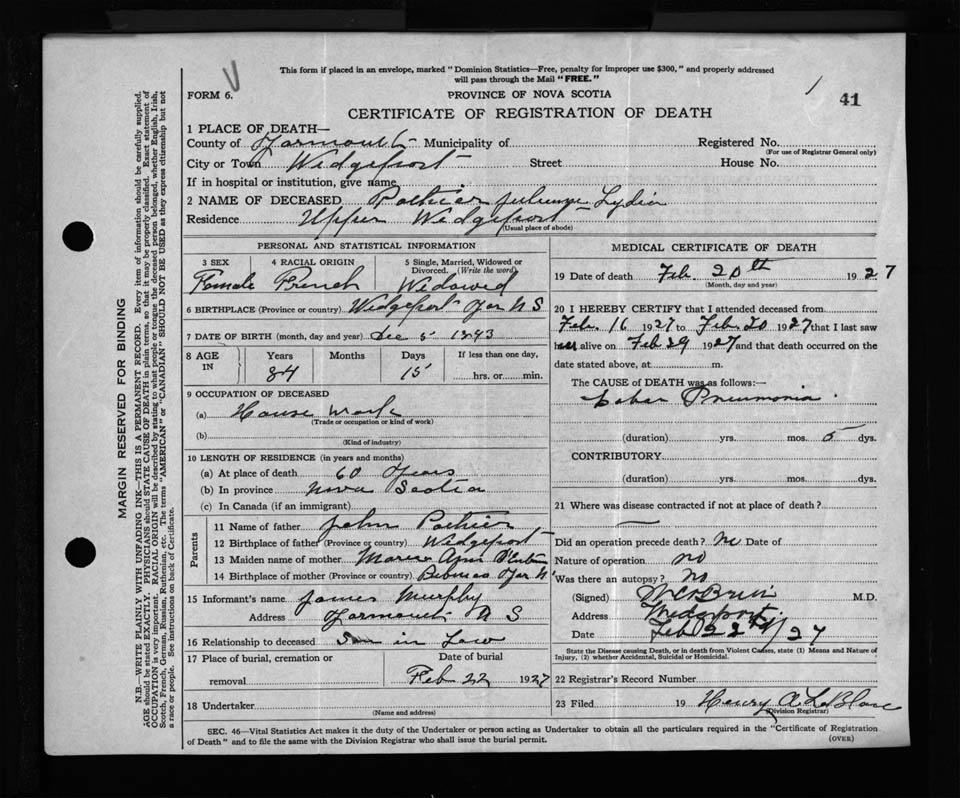 This form if placed in an envelope, marked "Dominion Statistics—Free, penalty for improper use $300," and properly addressed
will pass through the Mail "FREE."
FORM 6.
PROVINCE OF NOVA SCOTIA
41
CERTIFICATE OF REGISTRATION OF DEATH
1 PLACE OF DEATH—
County of Yarmouth Municipality of Registered No.
(For use of Registrar General only)
City or Town Wedgeport Street House No.
If in hospital or institution, give name
2 NAME OF DECEASED Pothier Lydia
Residence Upper Wedgeport
(Usual place of abode)
PERSONAL AND STATISTICAL INFORMATION
3 SEX 4 RACIAL ORIGIN 5 Single, Married, Widowed or Divorced. (Write the word)
Female French Widowed
6 BIRTHPLACE (Province or country) Wedgeport Yar N S
7 DATE OF BIRTH (month, day and year) Dec 5 1843
8 AGE IN Years Months Days If less than one day,
84 15 hrs. or min.
9 OCCUPATION OF DECEASED
(a) House work
(Trade or occupation or kind of work)
(b)
(Kind of industry)
10 LENGTH OF RESIDENCE (in years and months)
(a) At place of death 60 Years
(b) In province Nova Scotia
(c) In Canada (if an immigrant)
Parents
11 Name of father John Pothier
12 Birthplace of father (Province or country) Wedgeport
13 Maiden name of mother Marie Ann
14 Birthplace of mother (Province or country) Yar N
15 Informant's name James Murphy
Address Yarmouth N S
16 Relationship to deceased Son in Law
17 Place of burial, cremation or removal Date of burial
Feb 22 1927
18 Undertaker
(Name and address)
MEDICAL CERTIFICATE OF DEATH
19 Date of death Feb 20th 1927
(Month, day and year)
20 I HEREBY CERTIFY that I attended deceased from
Feb 16 1927 to Feb 20 1927 that I last saw
her alive on Feb 1927 and that death occurred on the
date stated above, at m.
The CAUSE of DEATH was as follows:—
Lobar Pneumonia.
(duration) yrs. mos. 5 dys.
CONTRIBUTORY
(duration) yrs. mos. dys.
21 Where was disease contracted if not at place of death?
Did an operation precede death? no Date of
Nature of operation no
Was there an autopsy? no
(Signed) M.D.
Address Wedgeport
Date Feb 22nd/27
State the Disease causing Death, or in death from Violent Causes, state (1) Means and Nature of
Injury, (2) whether Accidental, Suicidal or Homicidal.
22 Registrar's Record Number
23 Filed 19 Henry A LeBlanc
(Division Registrar)
SEC. 46—Vital Statistics Act makes it the duty of the Undertaker or person acting as Undertaker to obtain all the particulars required in the "Certificate of Registration
of Death" and to file the same with the Division Registrar who shall issue the burial permit.
(OVER)
MARGIN RESERVED FOR BINDING
N.B.—WRITE PLAINLY WITH UNFADING INK—THIS IS A PERMANENT RECORD. Every item of information should be carefully supplied.
AGE should be stated EXACTLY. PHYSICIANS should STATE CAUSE OF DEATH in plain terms, so that it may be properly classified. Exact statement of
OCCUPATION is very important. RACIAL ORIGIN will be described by stating to what people or tongue the deceased person belonged, whether English, Irish,
Scotch, French, German, Russian, Ruthenian, etc. The terms "AMERICAN" or "CANADIAN" SHOULD NOT BE USED as they express citizenship but not
a race or people. See instructions on back of Certificate.